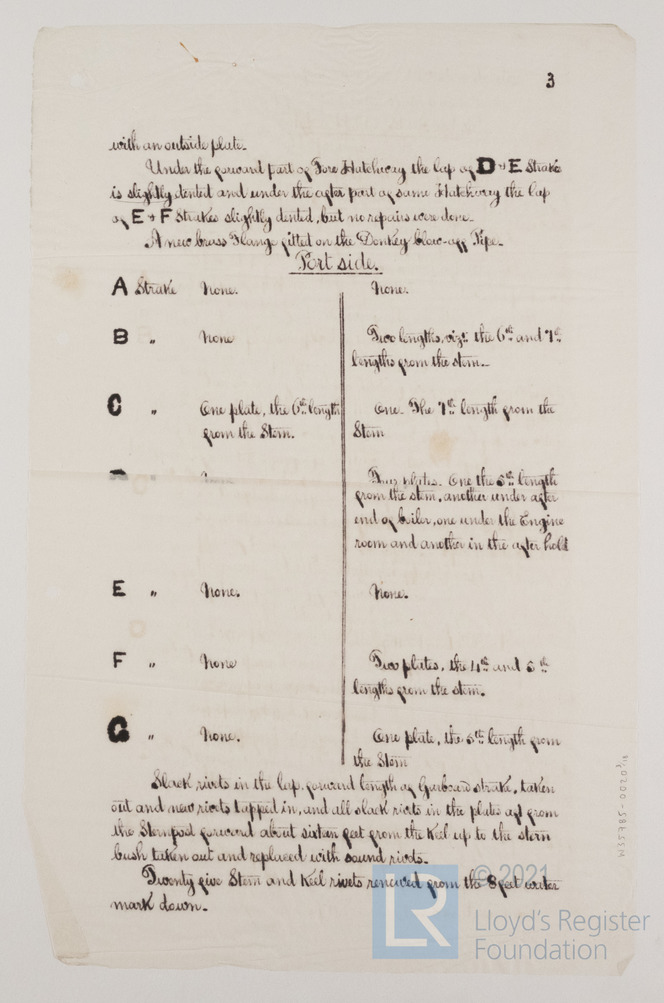 3
with an outside plate.
Under the forward part of Fore Hatchway the lap of D & E Strake
is slightly dented and under the after part of same Hatchway the lap
of E & F Strakes slightly dented, but no repairs were done.
A new brass Flange fitted on the Donkey blow-off Pipe.
Port side.
A Strake None. None.
B " None Two lengths, vizt. the 6th and 7th
lengths from the stem.
C " One plate, the 6th length One. The 7th length from the
from the Stem. Stem
plates. One the 5th length
from the stem, another under after
end of boiler, one under the Engine
room and another in the after hold
E " None. None.
F " None Two plates, the 4th and 5th
lengths from the stem.
G " None. One plate, the 5th length from
the Stem
Slack rivets in the lap, forward length of Garboard strake, taken
out and new rivets tapped in, and all slack rivets in the plates aft from
the Sternpost forward about sixteen feet from the Keel up to the stern
bush taken out and replaced with sound rivets.
Twenty five Stem and Keel rivets renewed from the 8 feet water
mark down.
W35785-0020 3/18
© 2021
LR
Lloyd's Register
Foundation